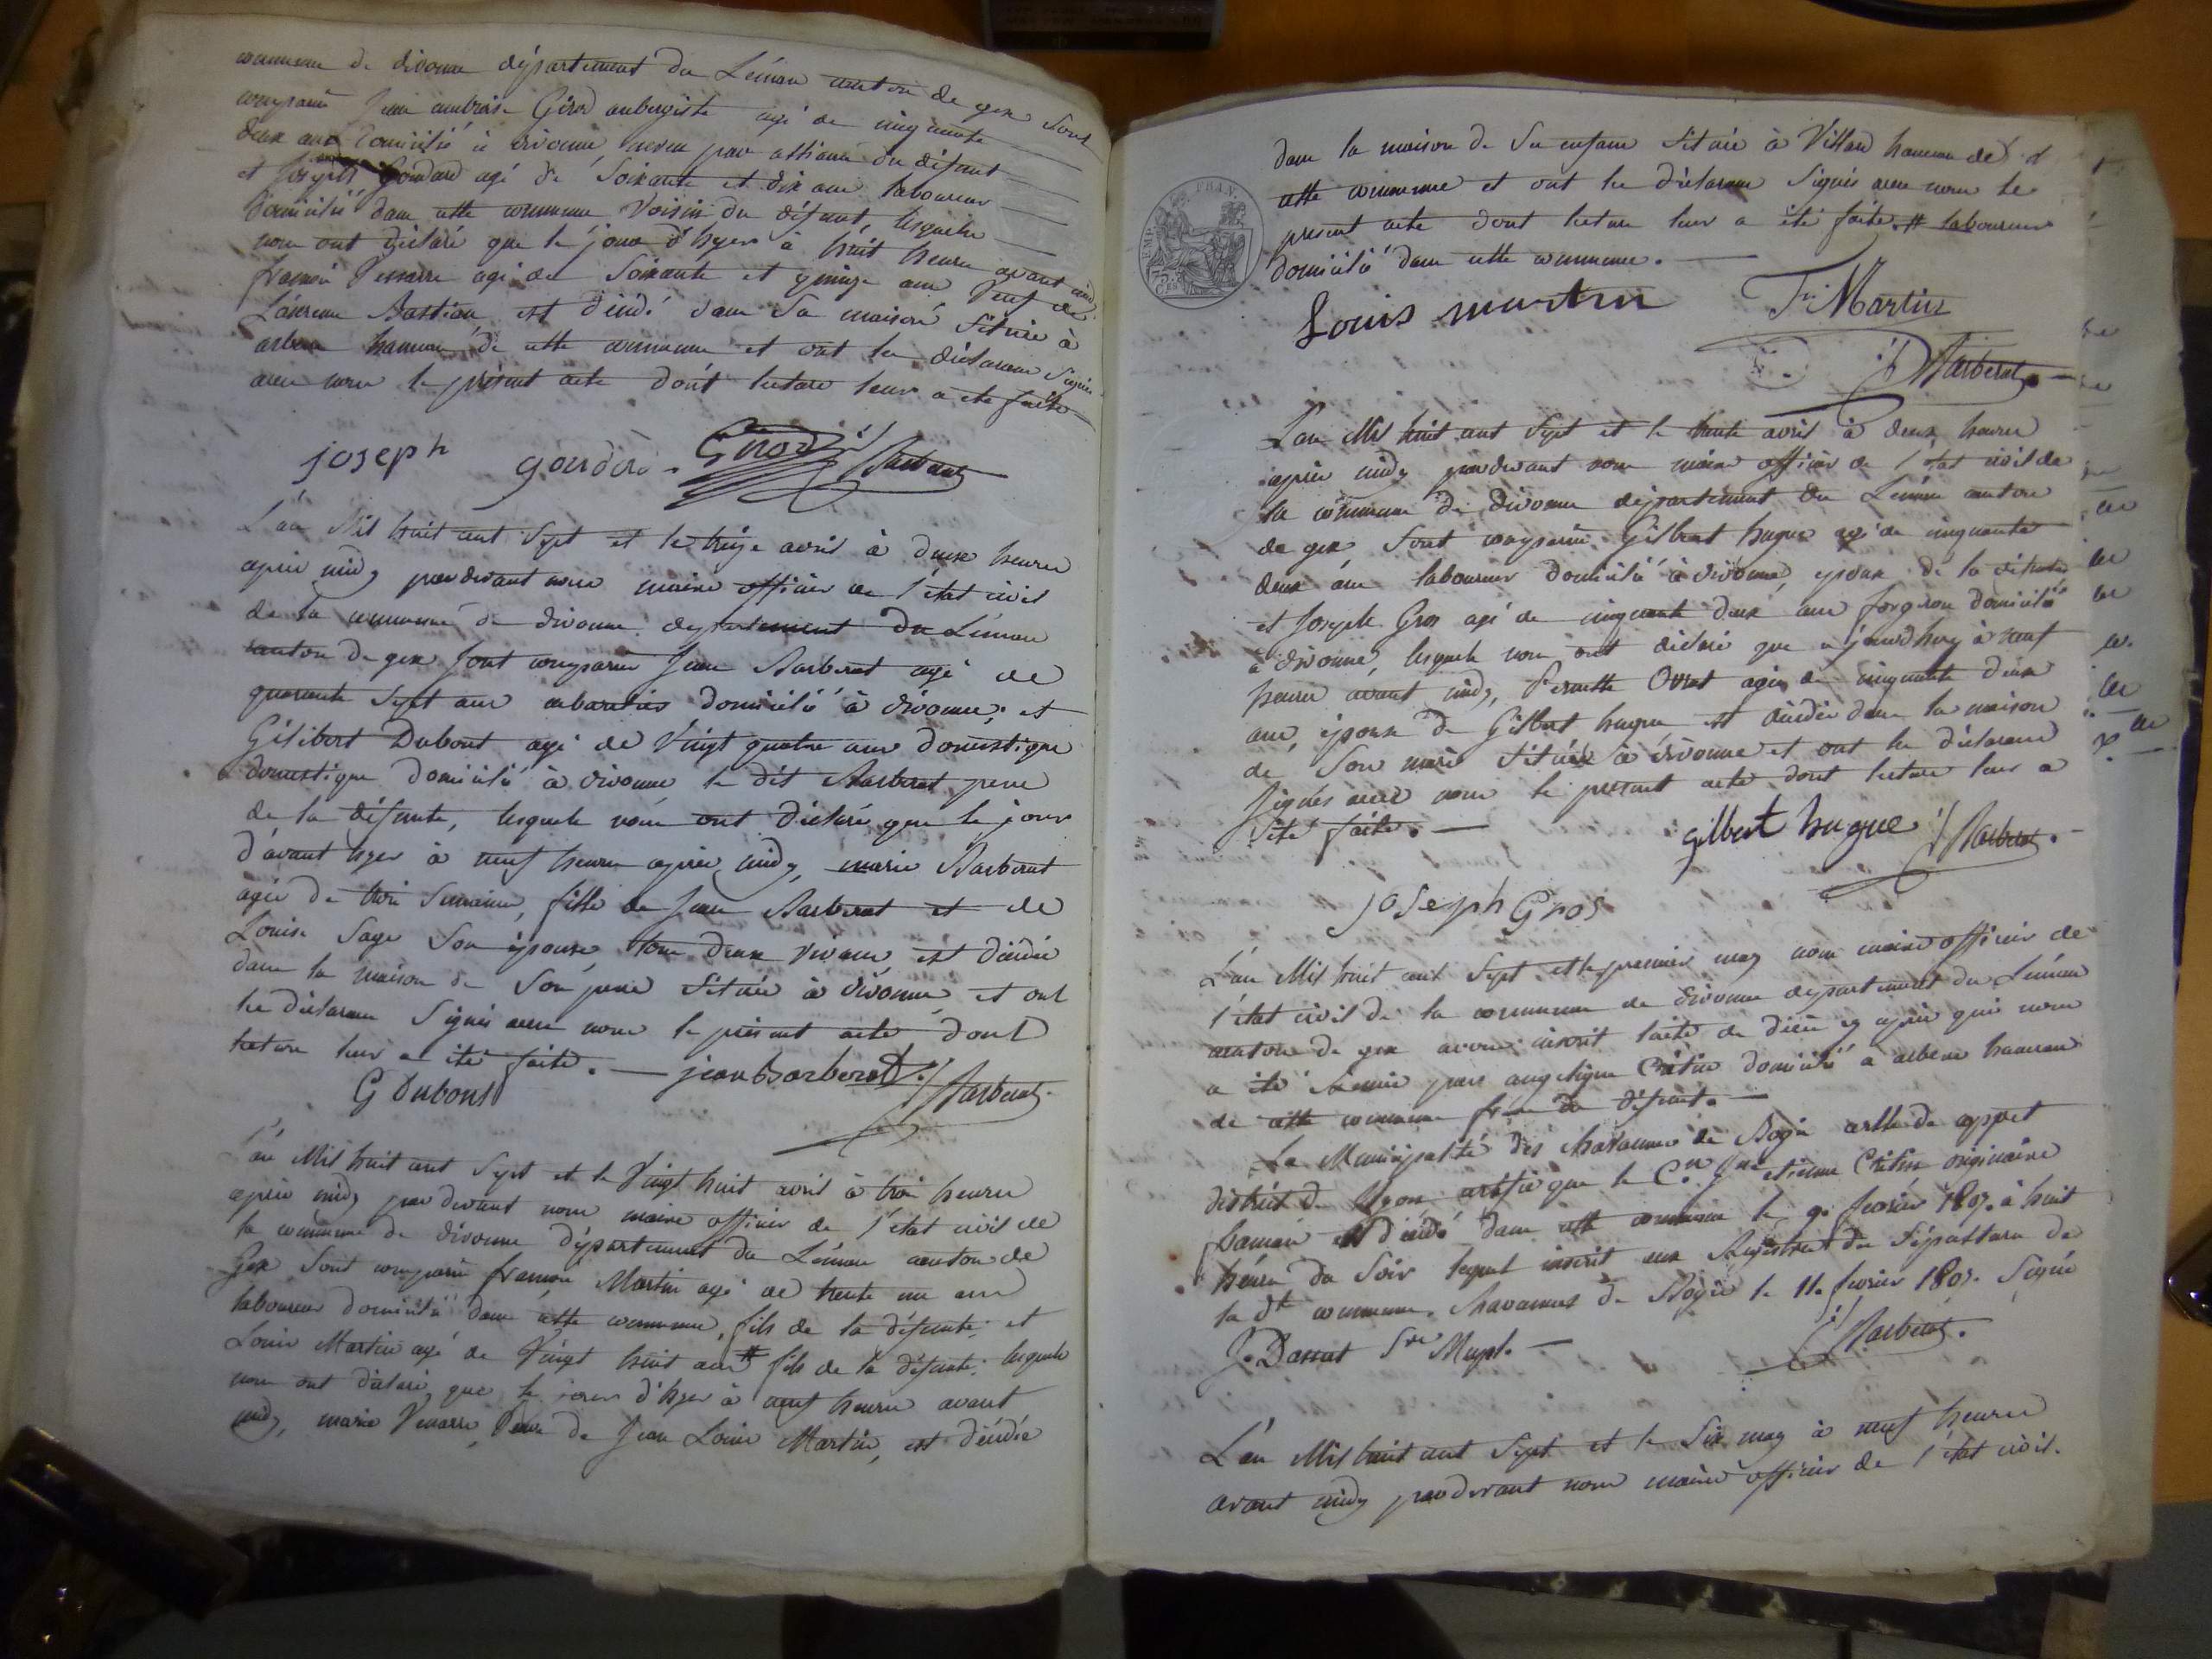 commune de divonne département du Léman canton de gex Sont
comparu Jean ambroise Girod aubergiste agé de cinquante
deux ans domicilié à divonne neveu par alliance du défunt
et Joseph Goudard agé de Soixante et dix ans laboureur
domicilié dans cette commune Voisin du défunt, lesquels
nous ont déclaré que le jour d'hyer à huit heures avant midy
françois Venarre agé de Soixante et quinze ans Veuf de
Laurence Bastian est décédé dans Sa maison Située à
arbere hameau de cette commune et ont les déclarans Signés
avec nous le présent acte dont lecture leur a été faite
joseph gourdard Girod Barberat
L'an Mil huit cent Sept et le treize avril à deux heures
après midy pardevant nous maire officier de l'état civil
de la commune de divonne departement du Léman
canton de gex Sont comparus Jean Barberat agé de
quarante Sept ans cabaretier domicilié à divonne; et
Gilibert Dubout agé de Vingt quatre ans domestique
domestique domicilié à divonne le dit Barberat pere
de la défunte, lesquels nous ont déclaré que le jour
d'avant hyer à neuf heures après midy, marie Barberat
agée de trois Semaines, fille de Jean Barberat et de
Louise Sage Son épouse, tous deux vivans est décédée
dans la maison de Son pere Située à divonne, et ont
les déclarans Signés avec nous le présent acte dont
lecture leur a été faite. — jean Barberat Barberat
G Dubout
L'an Mil huit cent Sept et le Vingt huit avril à trois heures
après midy pardevant nous maire officier de l'état civil de
la commune de divonne département du Léman canton de
Gex Sont comparu françois Martin agé de trente un ans
laboureur domicilié dans cette commune, fils de la défunte; et
Louis Martin agé de Vingt huit ans # fils de la défunte; lesquels
nous ont déclaré, que le jour d'hyer à neuf heures avant
midy, marie Venarre, Veuve de Jean Louis Martin, est décédée
dans la maison de Ses enfans Située à Villard hameau de
cette commune et ont les déclarans Signés avec nous le
present acte dont lecture leur a été faite. # laboureur
domicilié dans cette commune. —
Louis martin Fs Martin
Barberat
L'an Mil huit cent Sept et le trente avril à deux heures
après midy pardevant nous maire officier de l'état civil de
la commune de divonne département du Léman canton
de gex Sont comparu Gilbert hugue agé de cinquante
deux ans laboureur domicilié à divonne, epoux de la défunte
et Joseph Gros agé de cinquante deux ans forgeron domicilié
à divonne, lesquels nous ont déclaré que aujourd'huy à neuf
heures avant midy, Pernette Ovrat agée de cinquante deux
ans, épouse de Gilbert hugue est décédée dans la maison
de Son mari Située à divonne et ont les déclarans
Signés avec nous le present acte dont lecture leur a
été faite. — gilbert hugue Barberat
joseph Gros
L'an Mil huit cent Sept et le premier may nous maire officier de
l'état civil de la commune de divonne departement du Léman
canton de gex avons inscrit l'acte de décès cy après qui nous
a été remis par angelique Crétin domicilié à arbere hameau
de cette commune du défunt. —
La Municipalité des chavannes de Bogis cercle de coppet
district de Nyon certifie que le etienne Crétin originaire
français est décédé dans cette commune le 9. fevrier 1807. à huit
heures du Soir lequel inscrit aux Registres de Sépulture de
la dte commune. Chavannes de Bogis le 11. fevrier 1807. Signé
J. Barberat.
L'an Mil huit cent Sept et le Six may à neuf heures
avant midy pardevant nous maire officier de l'état civil.